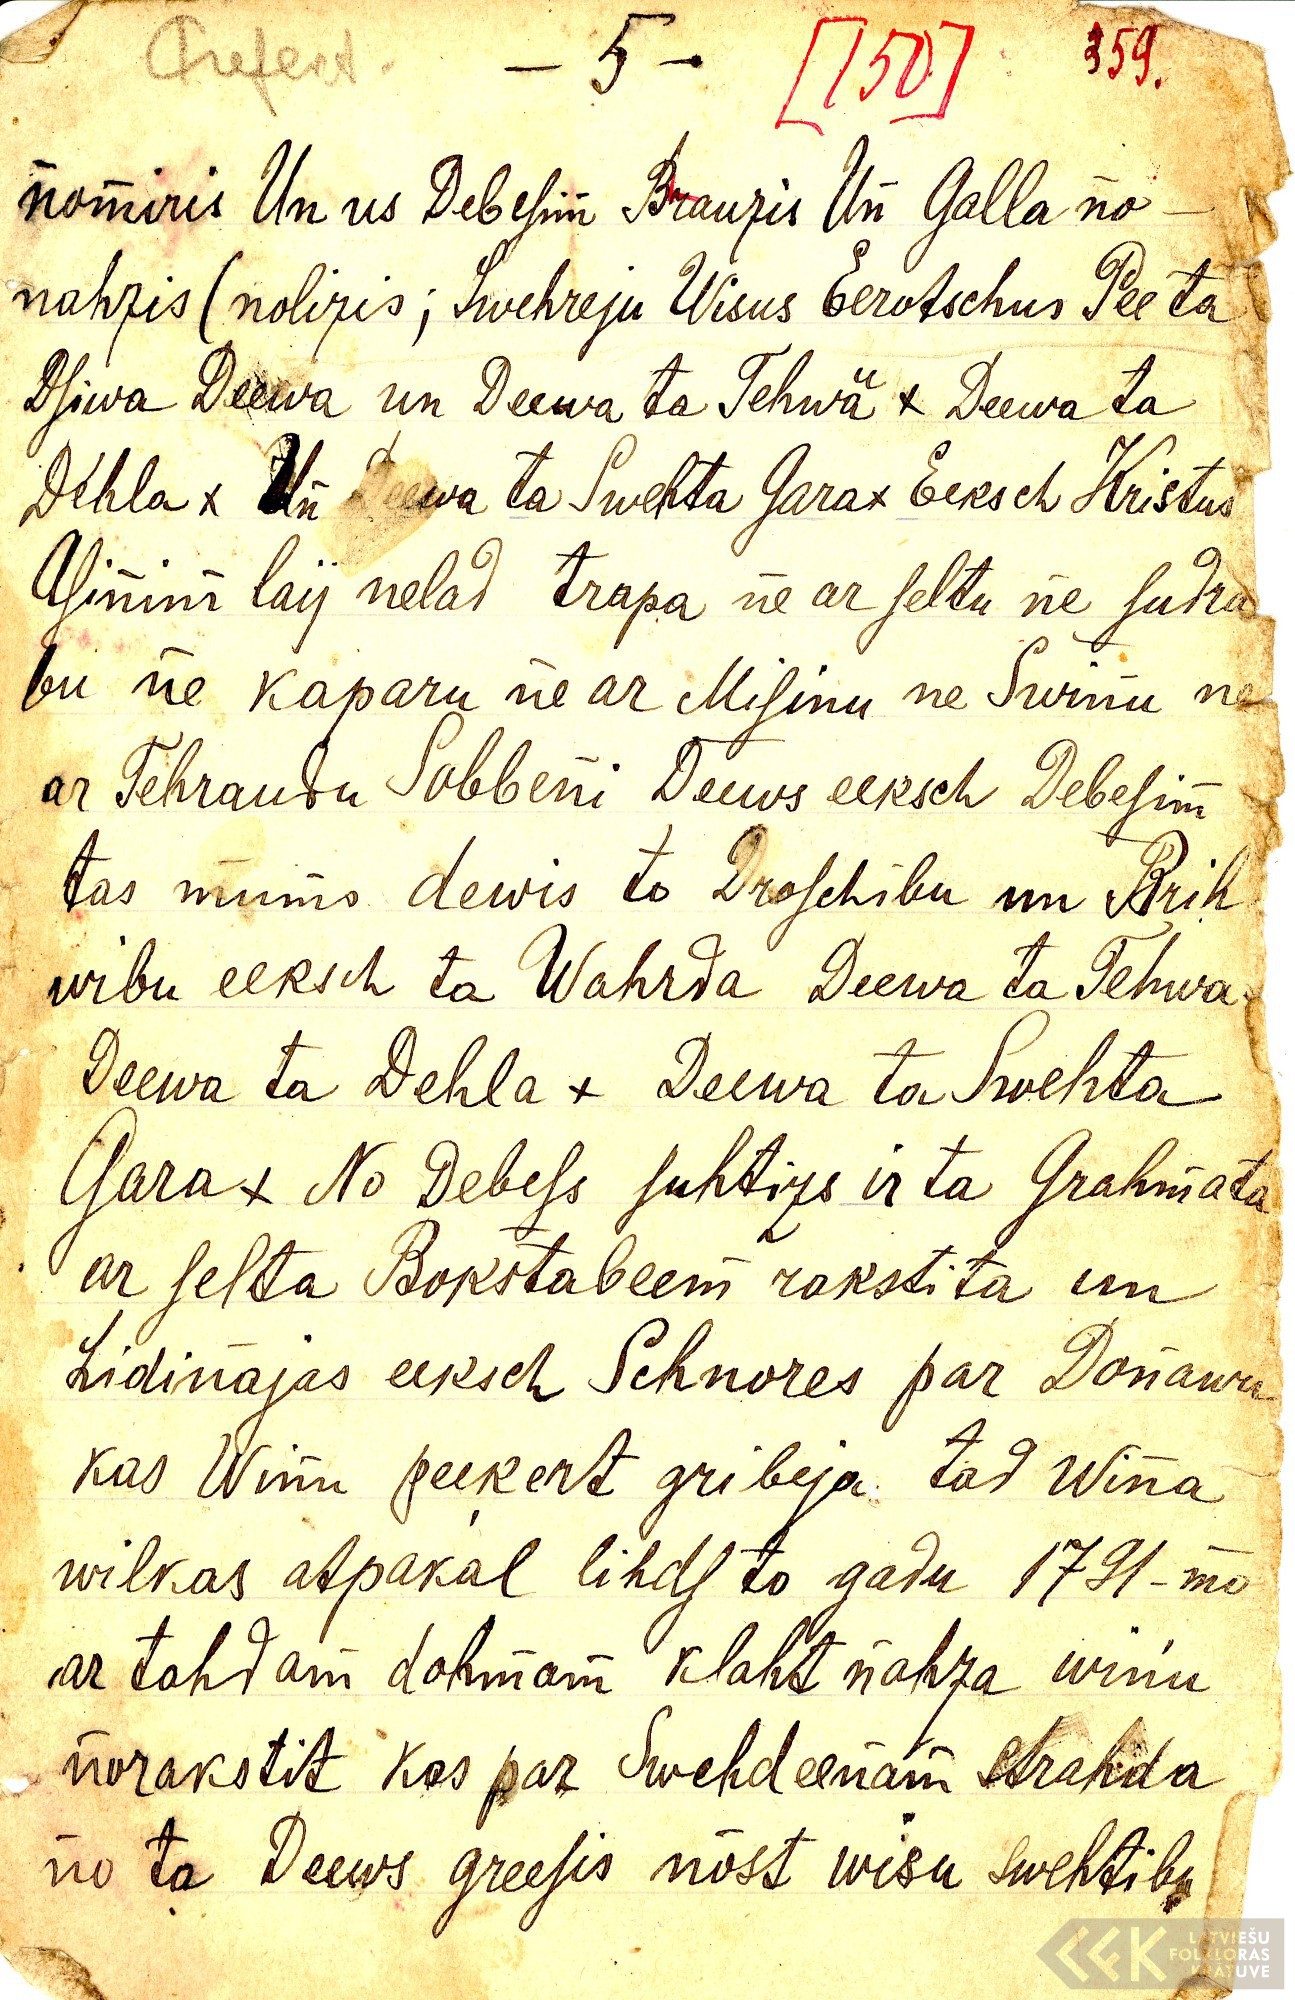 – 5 – [150] 359.
nomiris Un us Debesim Brauzis Un Galla no –
nahzis (nolizis; Swehreju Wisus Eerotschus Pee ta
Dsiwa Deewa un Deewa ta Tehwa x Deewa ta
Dehla x Un Deewa ta Swehta Gara x Eeksch Kristus
Asinim laij nelad trapa ne ar seltu ne sudra
bu ne kaparu ne ar Misinu ne Swinu ne
ar Tehraudu Sobbeni Deews eeksch Debesim
tas mums dewis to Droschibu un Brih
wibu eeksch ta Wahrda Deewa ta Tehwa x
Deewa ta Dehla x Deewa ta Swehta
Gara x No Debess suhtizs ir ta Grahmata
ar selta Bokstabeem rakstita un
Lidinajas eeksch Schnores par Donawu
kas Winu peekert gribeja tad wina
wilkas atpakal lihds to gadu 1791-mo
ar tahdam dohmam klaht nahza winu
norakstit kas par Swehdeenam strahda
no ta Deews greesis nost wisu swehtibu
LATVIEŠU
FOLKLORAS
KRĀTUVE